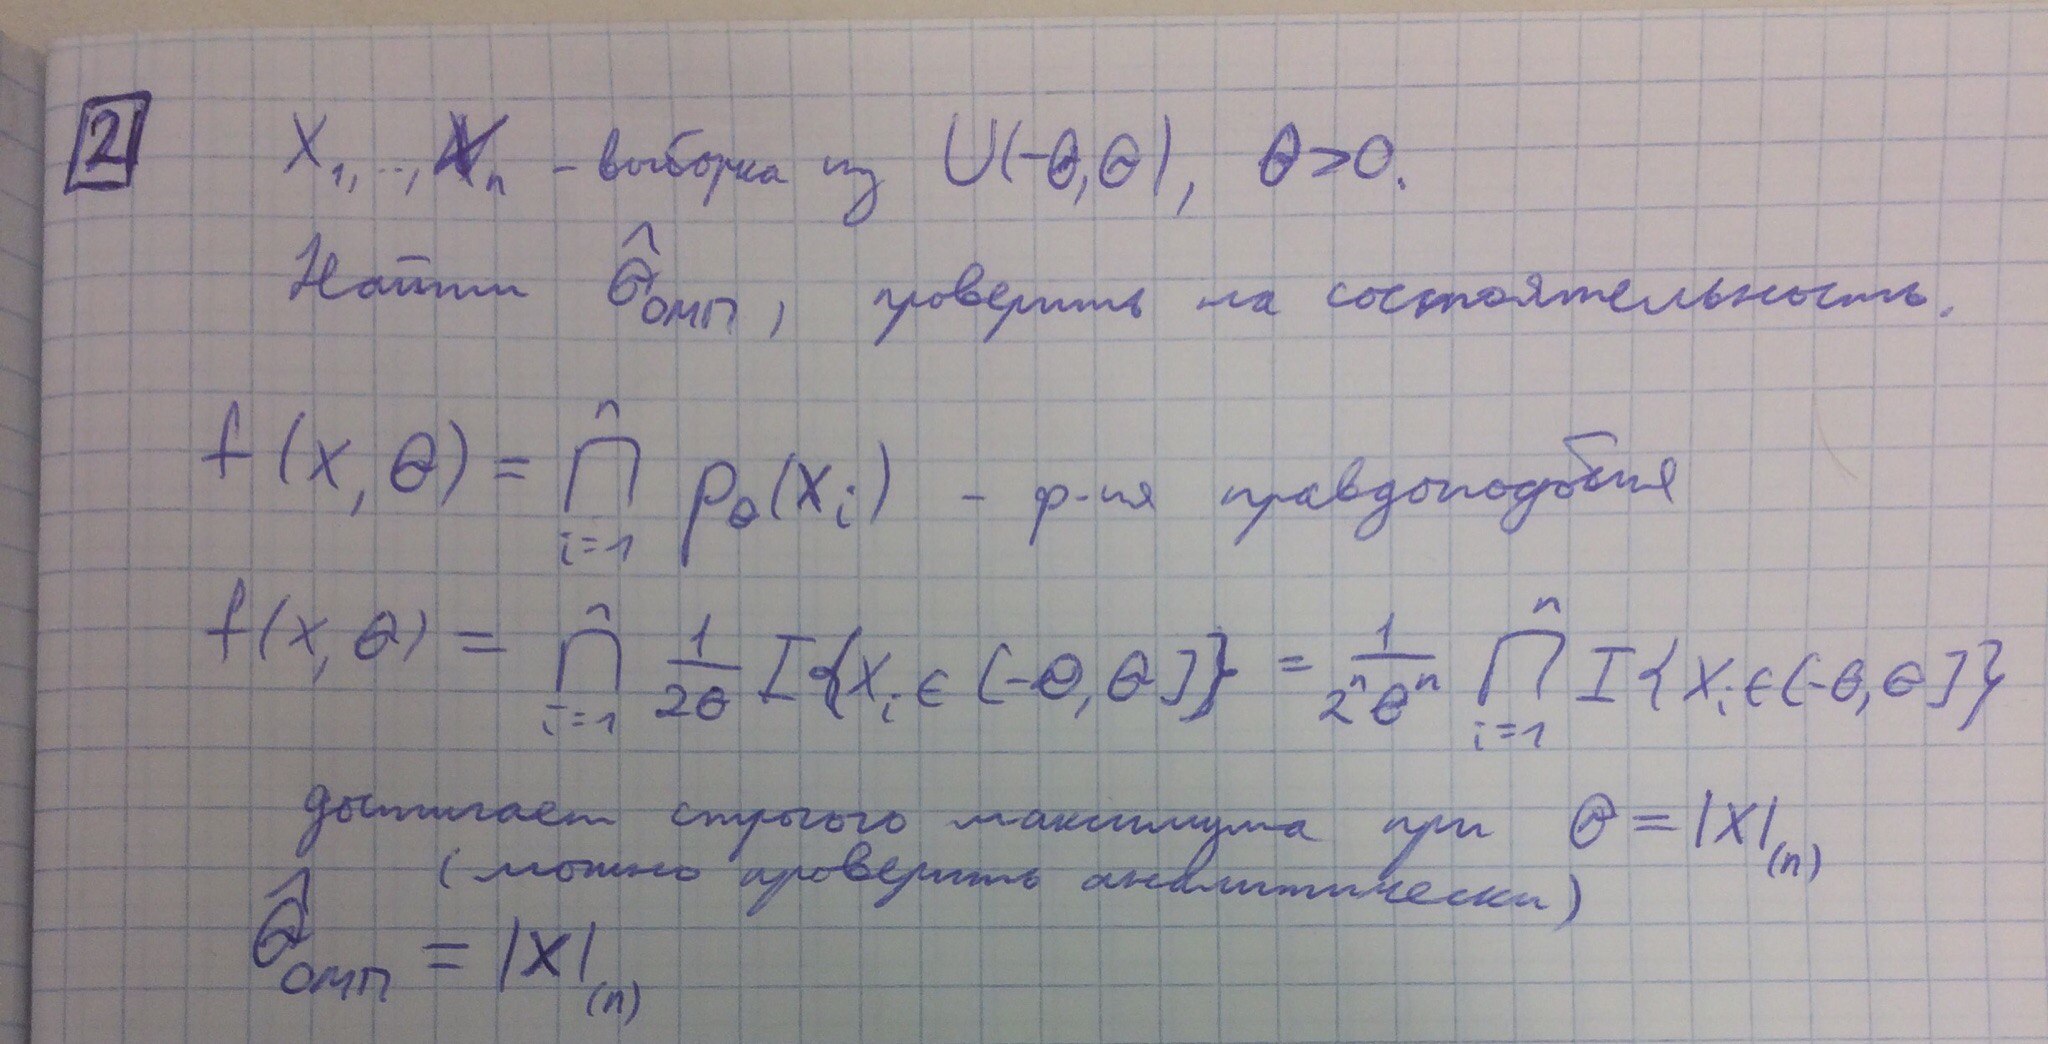 2 X₁,..,Xₙ - выборка из U(-θ,θ), θ>0.
Найти θ̂ОМП, проверить на состоятельность.
f(x,θ) = ∏ᵢ₌₁ⁿ p_θ(xᵢ) - ф-ия правдоподобия
f(x,θ) = ∏ᵢ₌₁ⁿ 1/2θ I{xᵢ∈[-θ,θ]} = 1/2ⁿθⁿ ∏ᵢ₌₁ⁿ I{xᵢ∈[-θ,θ]}
достигает строгого максимума при θ = |X|₍ₙ₎
(можно проверить аналитически)
θ̂ОМП = |X|₍ₙ₎